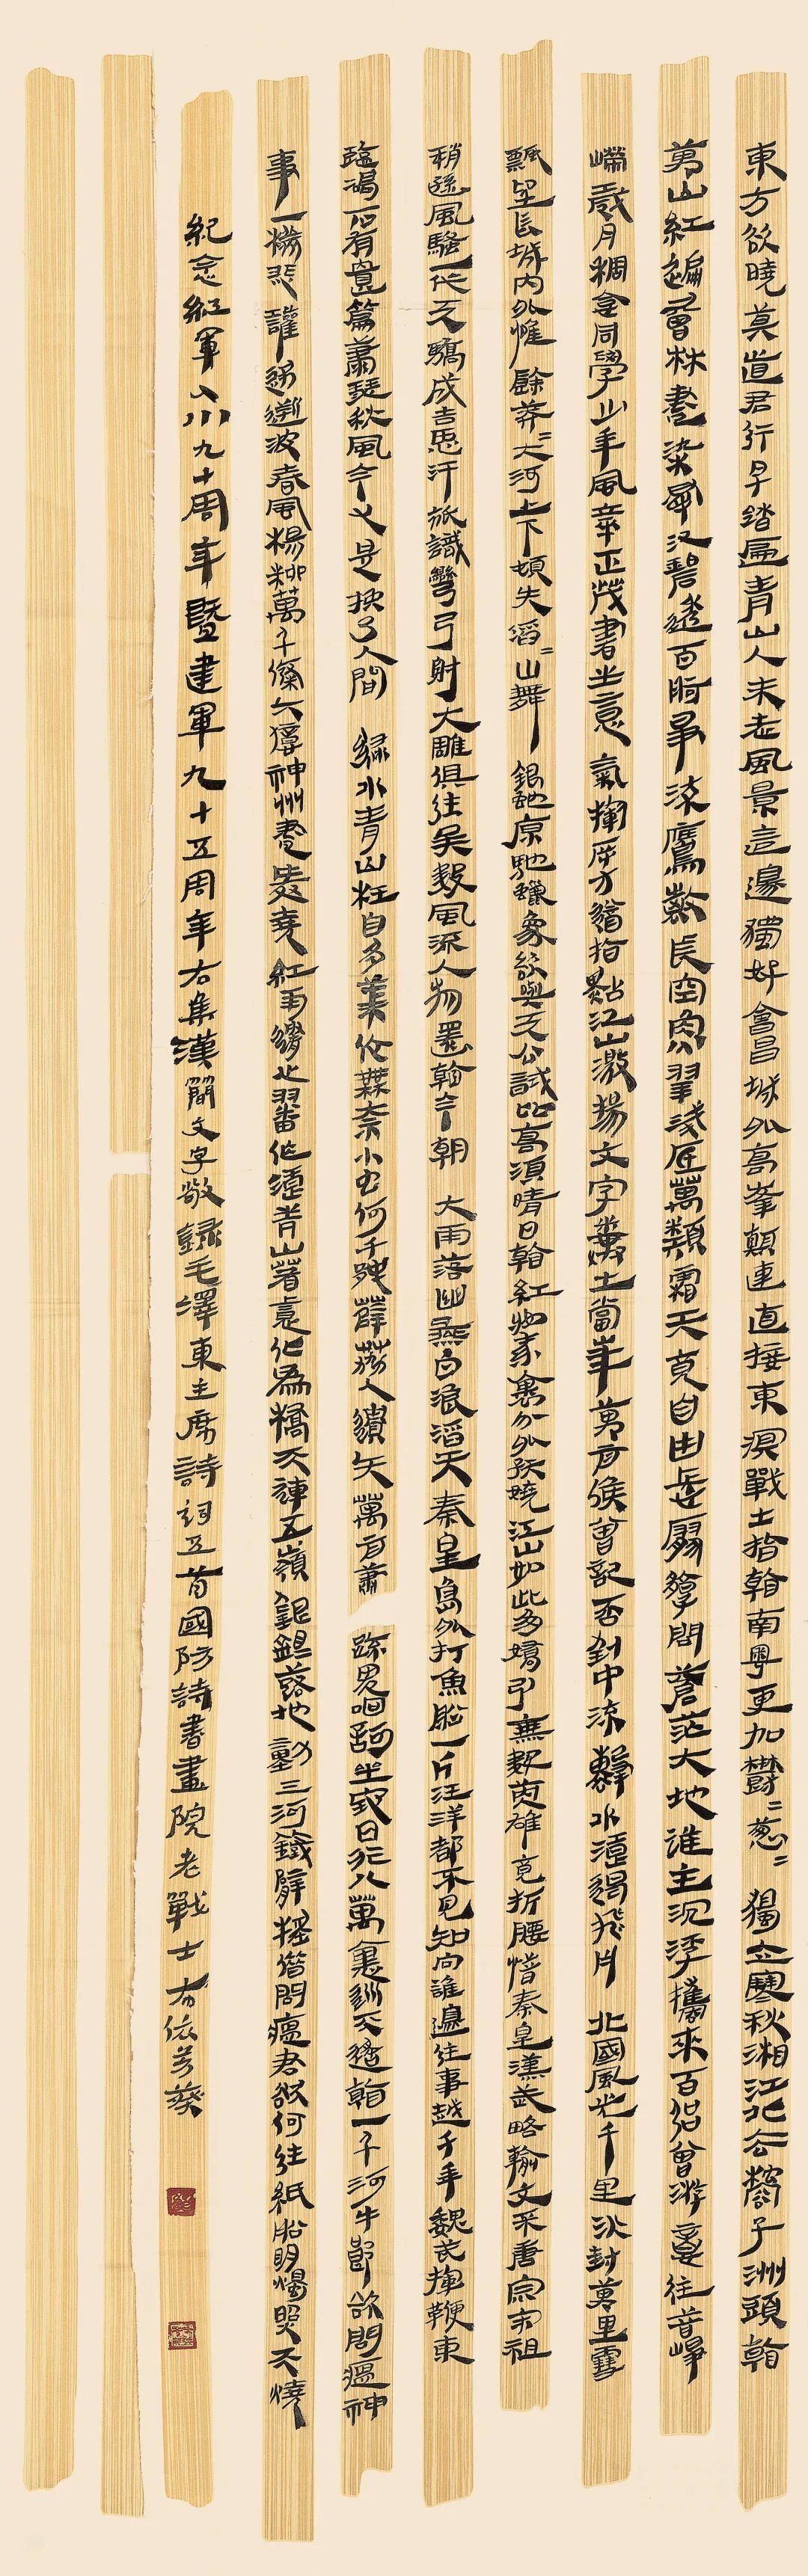 東方欲曉莫道君行早踏遍青山人未老風景這邊獨好會昌城外高峯顛連直接東溟戰士指看南粵更加鬱〻蔥〻 獨立寒秋湘江北去橘子洲頭看
萬山紅遍層林盡染漫江碧透百舸爭流鷹擊長空魚翔淺底萬類霜天競自由悵寥廓問蒼茫大地誰主沉浮攜來百侶曾游憶往昔崢
嶸歲月稠恰同學少年風華正茂書生意氣揮斥方遒指點江山激揚文字糞土當年萬戶侯曾記否到中流擊水浪遏飛舟 北國風光千里冰封萬里雪
飄望長城內外惟餘莽〻大河上下頓失滔〻山舞銀蛇原馳蠟象欲與天公試比高須晴日看紅裝素裹分外妖嬈江山如此多嬌引無數英雄競折腰惜秦皇漢武略輸文采唐宗宋祖
稍遜風騷一代天驕成吉思汗祇識彎弓射大雕俱往矣數風流人物還看今朝 大雨落幽燕白浪滔天秦皇島外打魚船一片汪洋都不見知向誰邊往事越千年魏武揮鞭東
臨碣石有遺篇蕭瑟秋風今又是換了人間 綠水青山枉自多華佗無奈小蟲何千村薜荔人遺矢萬戶蕭疏鬼唱歌坐地日行八萬里巡天遙看一千河牛郎欲問瘟神
事一樣悲歡逐逝波春風楊柳萬千條六億神州盡舜堯紅雨隨心翻作浪青山著意化為橋天連五嶺銀鋤落地動三河鐵臂搖借問瘟君欲何往紙船明燭照天燒
紀念紅軍入川九十周年暨建軍九十五周年右集漢簡文字敬錄毛澤東主席詩詞五首國防詩書畫院老戰士布依